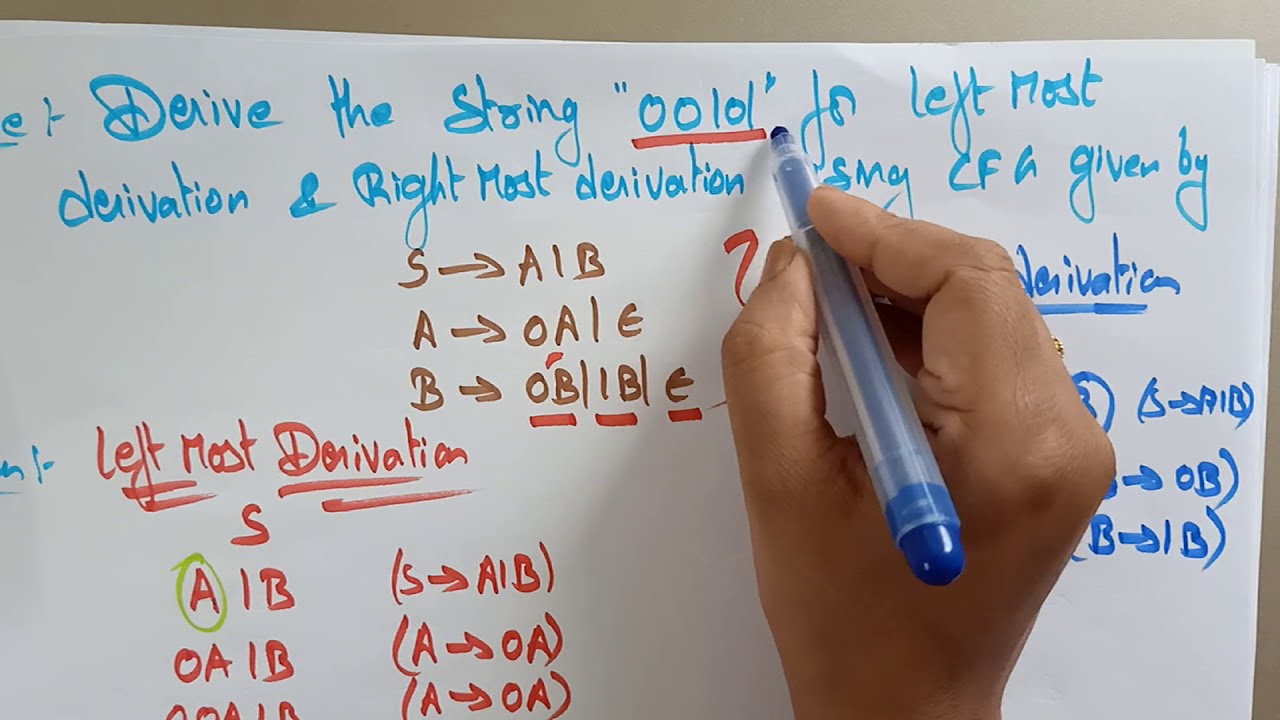 e:- Derive the string "00101" for left Most
derivation & Right Most derivation using CFG given by
S → A1B
A → 0A | ε
B → 0B | 1B | ε
derivation
n:- left Most Derivation
S
A1B (S → A1B)
0A1B (A → 0A)
00A1B (A → 0A)
B) (S → A1B)
→ 0B)
(B → 1B)